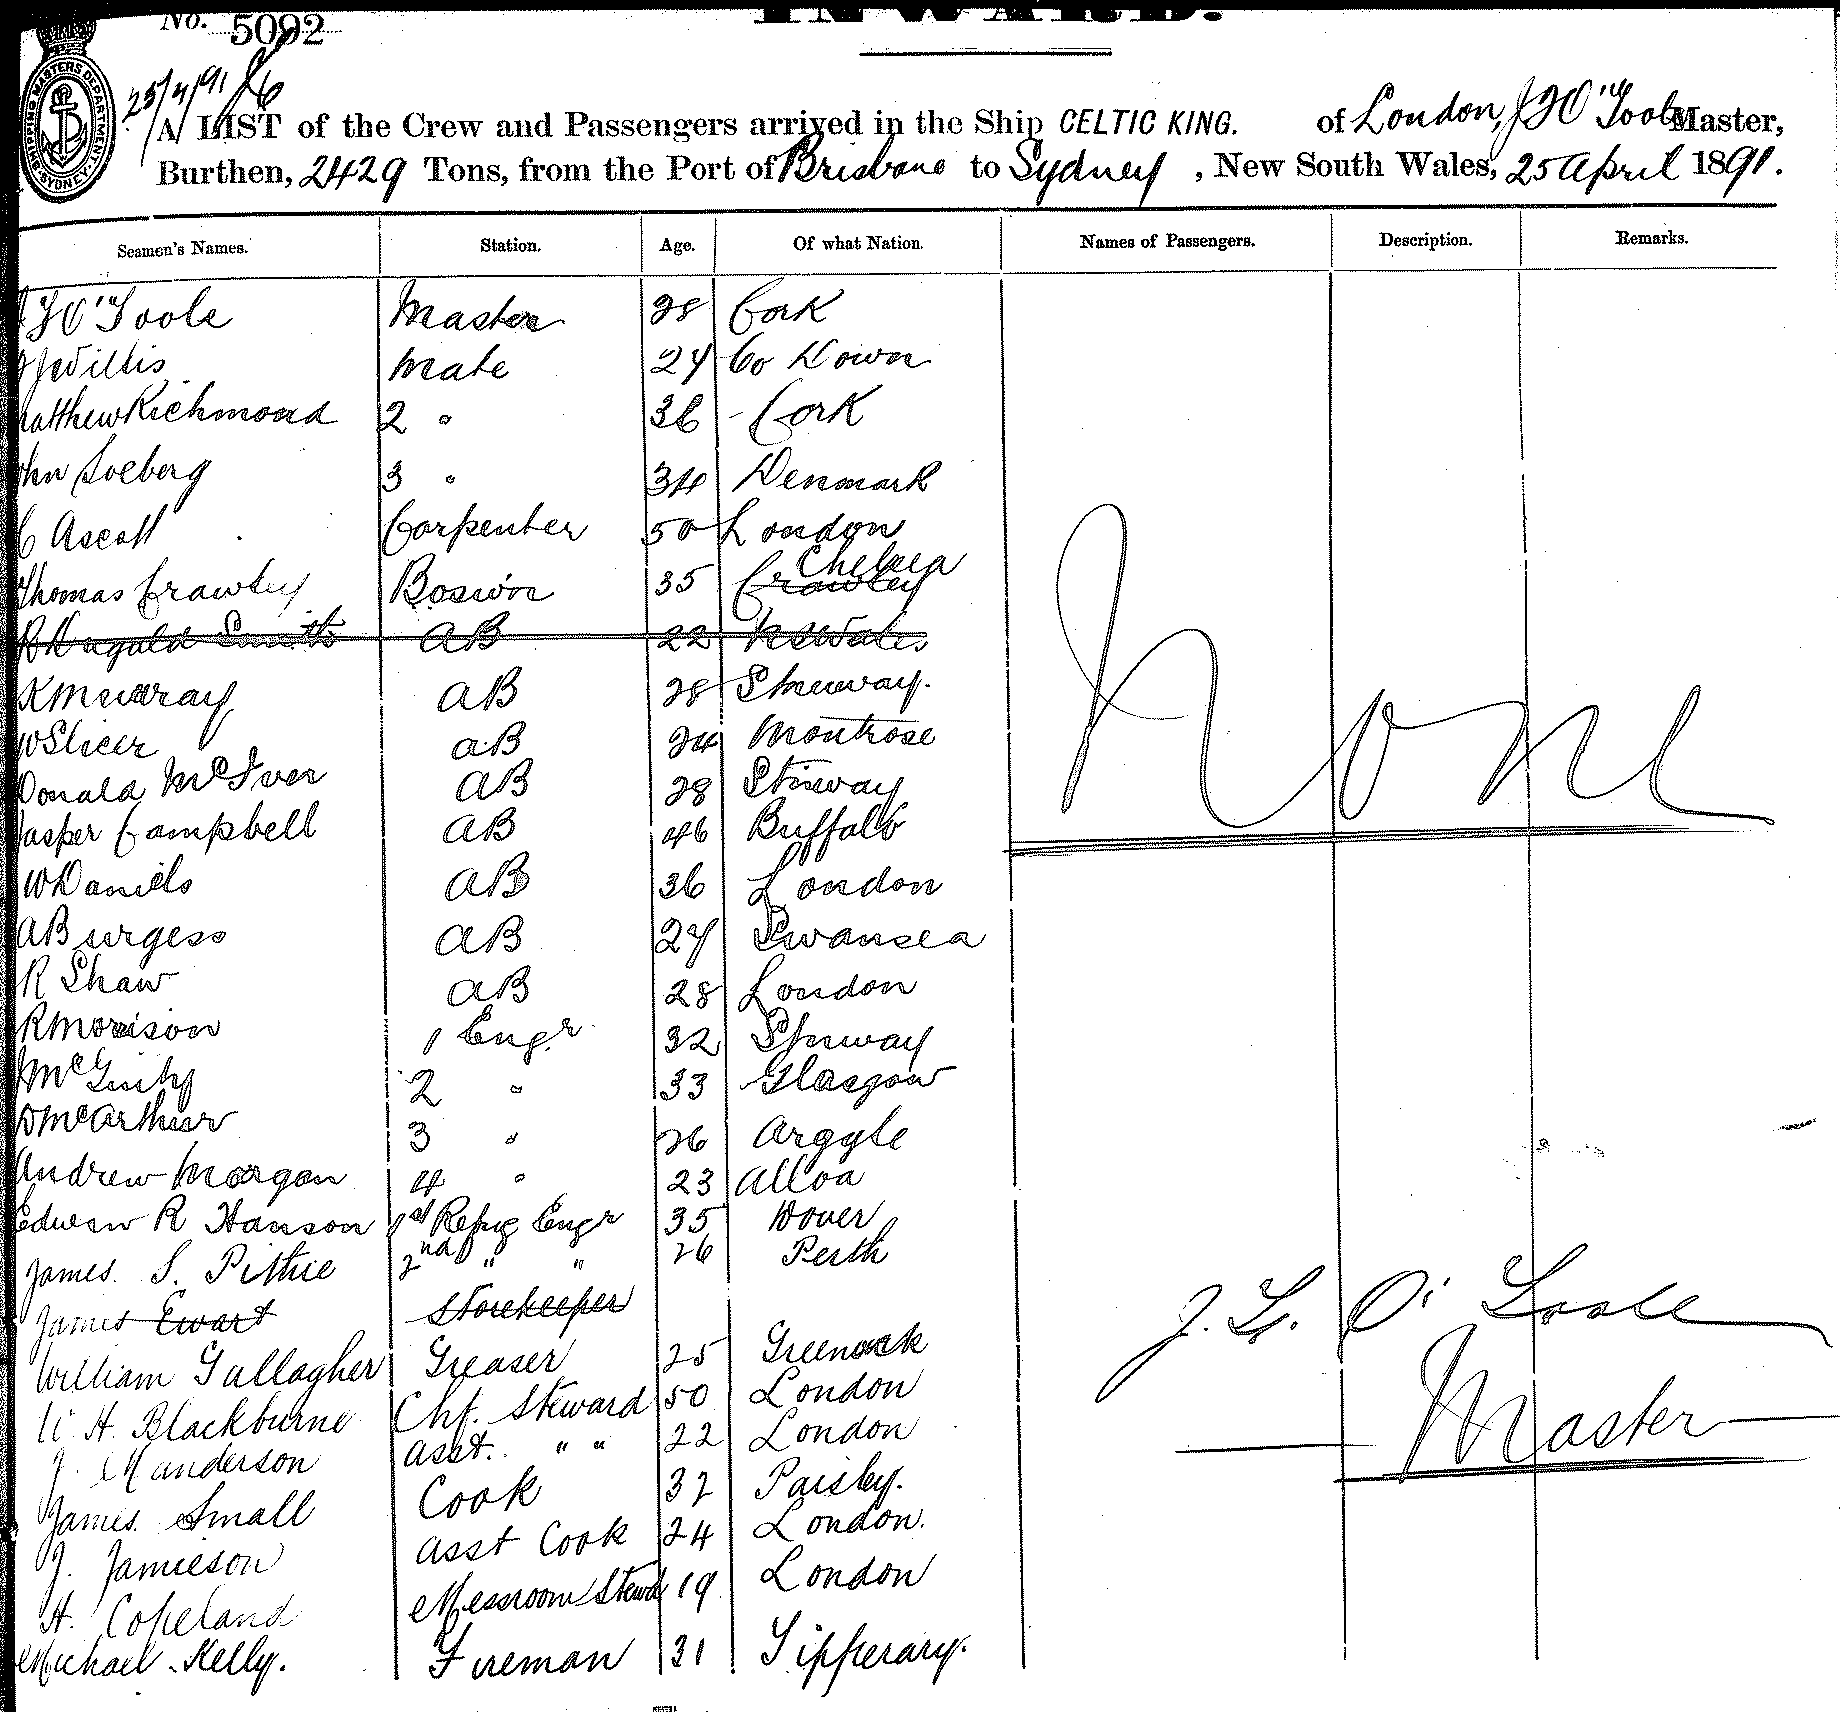 No. 5092
INWARD.
SHIPPING MASTERS DEPARTMENT SYDNEY
25/4/91
A LIST of the Crew and Passengers arrived in the Ship CELTIC KING. of London, J F O'Toole Master,
Burthen, 2429 Tons, from the Port of Brisbane to Sydney, New South Wales, 25 April 1891.
Seamen's Names. Station. Age. Of what Nation. Names of Passengers. Description. Remarks.
O'Toole Master 28 Cork
Willis Mate 27 Co Down
Matthew Richmond 2 " 36 Cork
John Soeberg 3 " 34 Denmark
C Ascott Carpenter 50 London
Thomas Crawley Boswn 35 Crawley Chelsea
R Dugald Smith AB 22 NSWales
K Murray AB 28 Stnway.
W Slicer AB 24 Montrose
None
Donald McIver AB 28 Stnway
Jasper Campbell AB 46 Buffalo
W Daniels AB 36 London
A Burgess AB 27 Swansea
R Shaw AB 28 London
R Morrison 1 Engr 32 Stnway
2 " 33 Glasgow
D McArthur 3 " 26 Argyle
Andrew Morgan 4 " 23 Alloa
Edwin R Hanson 1st Refrig Engr 35 Dover
James S. Pittie 2nd " " 26 Perth
James Ewart Storekeeper
J. F. O'Toole
William Gallagher Greaser 25 Greenock
W. H. Blackburne Chf. Steward 50 London
Master
J. Manderson Asst. " " 22 London
James Small Cook 32 Paisley.
J. Jamieson Asst Cook 24 London.
H. Copeland Messroom Stewd 19 London
Michael Kelly. Fireman 31 Tipperary.